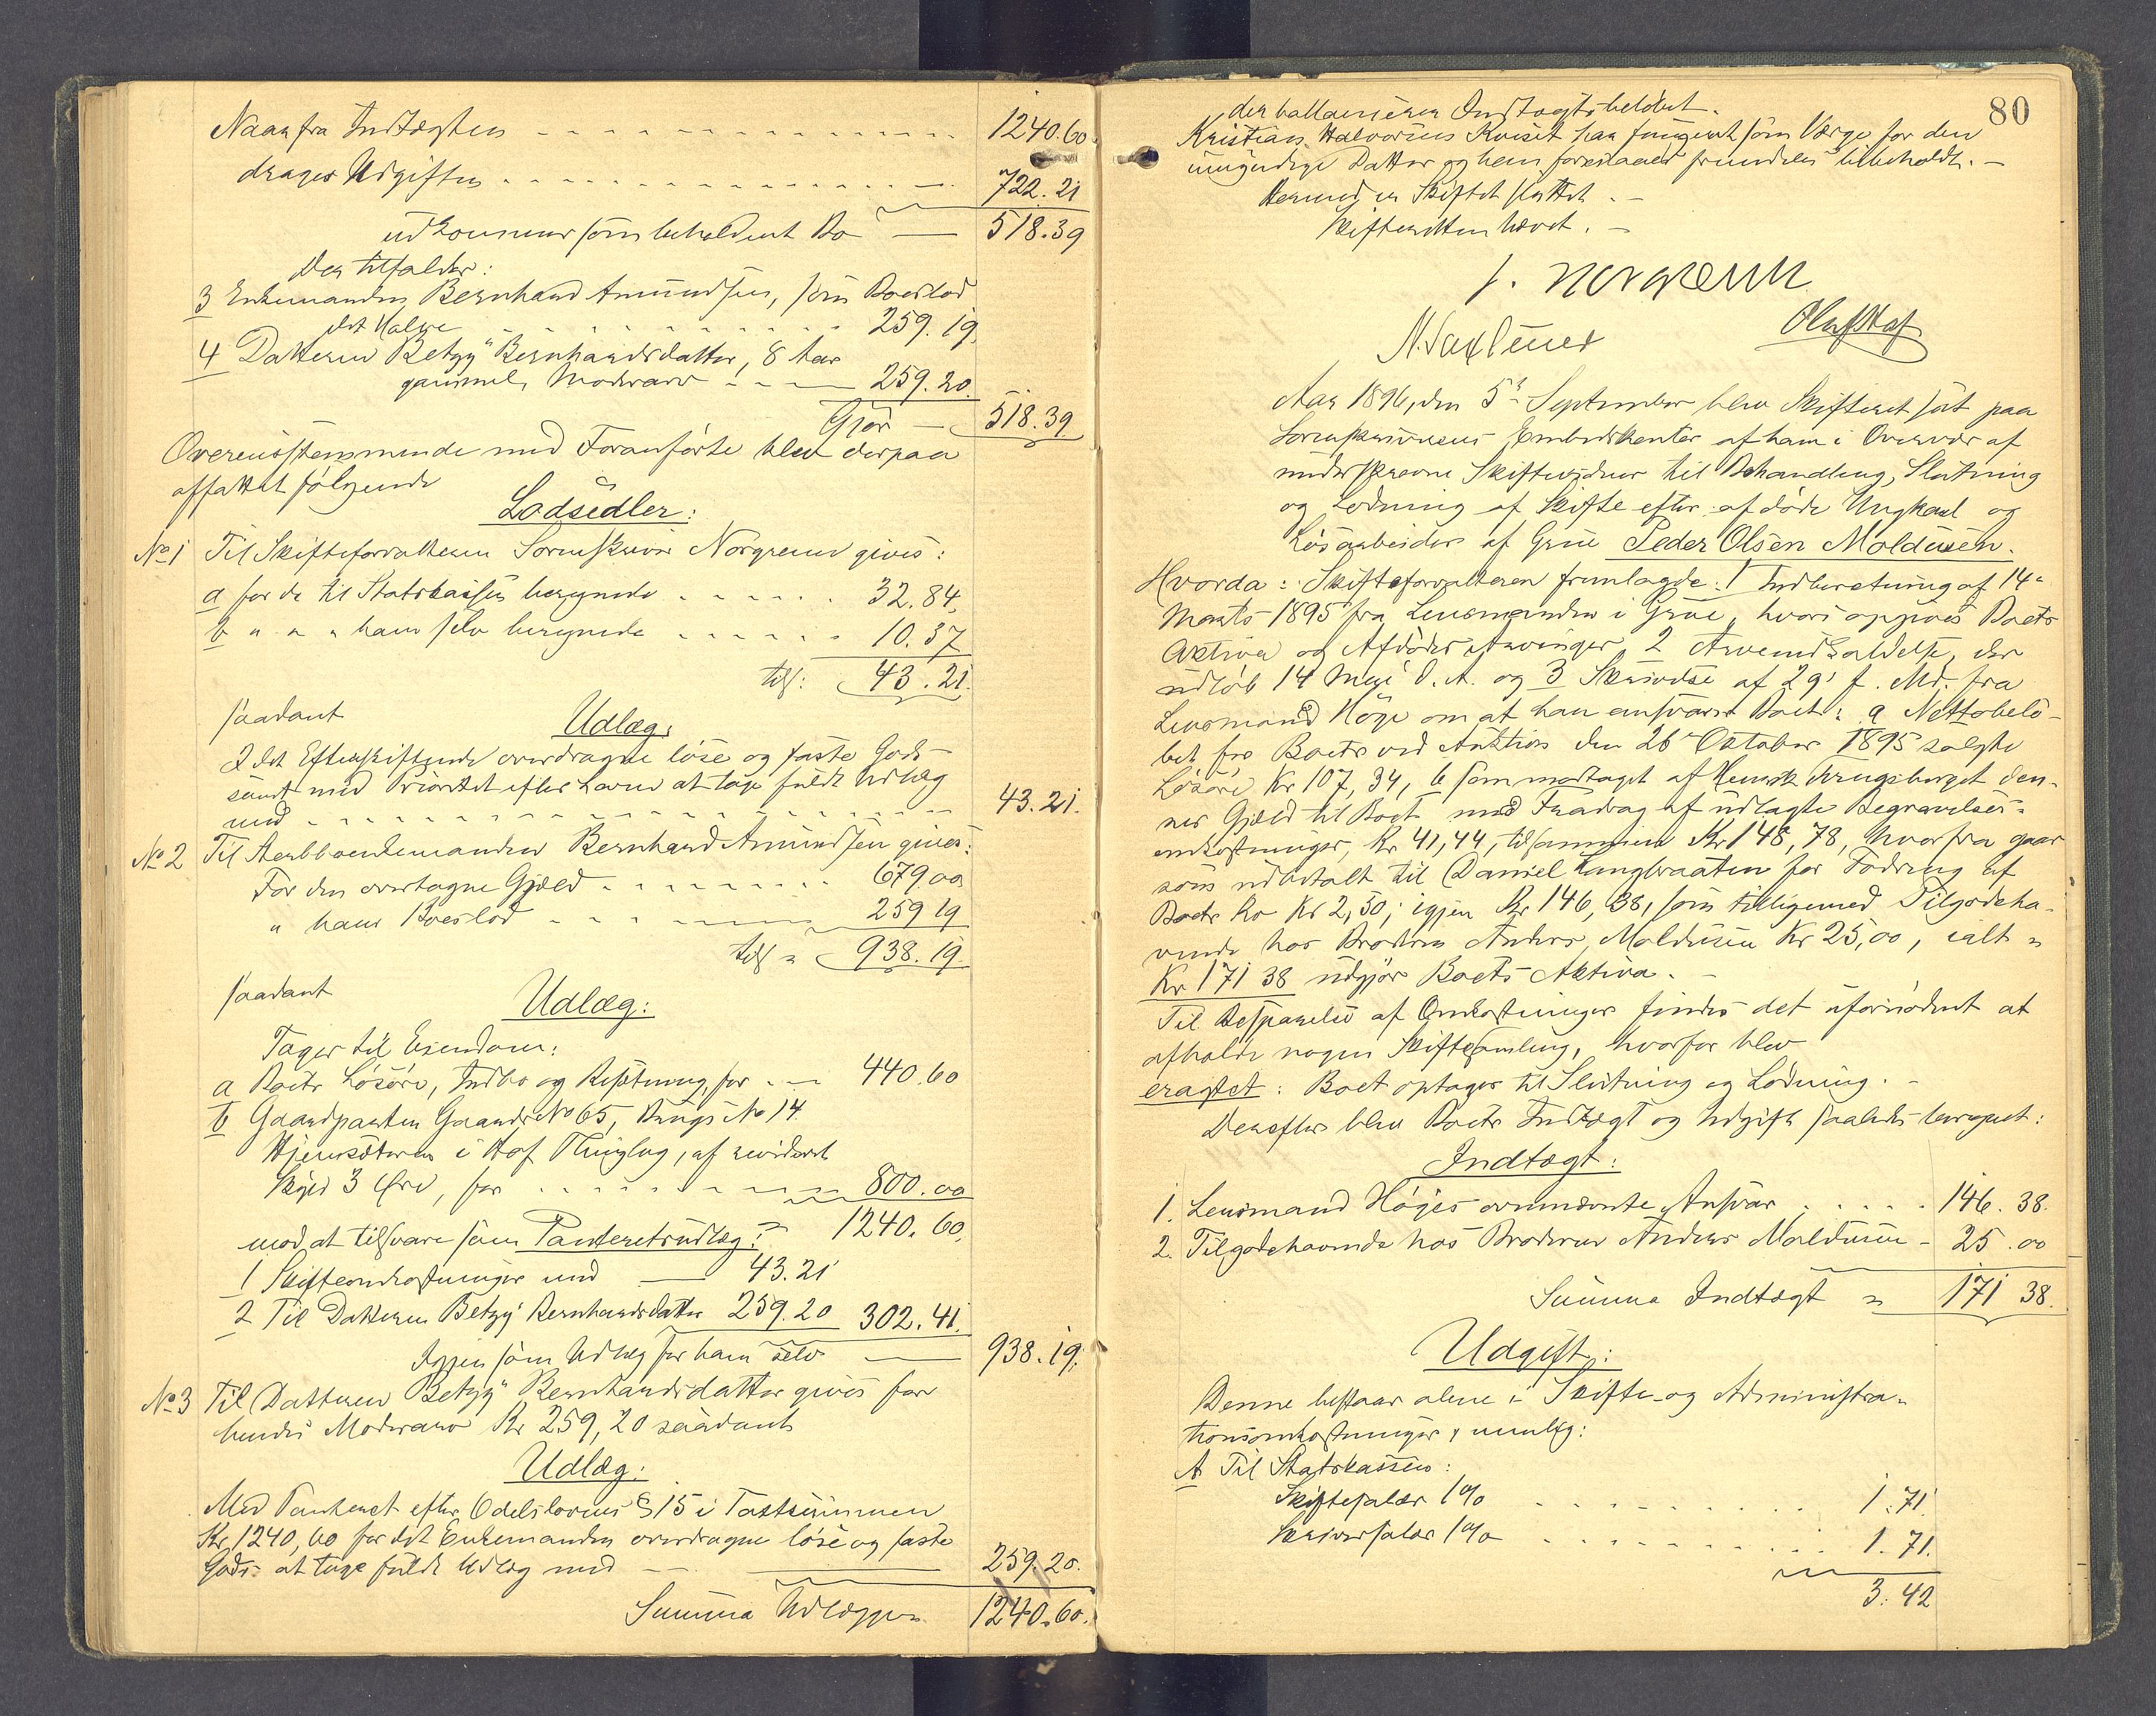 Naar fra Indtægten - - - 1240.60.
drages Udgiften - - - 722.21
udkommer som beholdent Bo — 518.39
Der tilfalder:
3 Enkemanden Bernhard Amundsen, som Boeslod
det Halve - - - 259.19.
4 Datteren Betzy Bernhardsdatter, 8 Aar
gammel, Modrearv - - - 259.20.
Gjør — 518.39
Overensstemmende med Foranførte blev derpaa
affattet følgende
Lodsedler:
No 1 Til Skifteforvalteren Sorenskriver Norgrenn gives:
a for de til Statskassen beregnede - - - 32.84.
b " " " ham selv beregnede - - - 10.37
tils: 43.21.
saadant
Udlæg:
I det Efterskiftende overdragne løse og faste Gods
samt med Prioritet efter Loven at tage fuldt Udlæg
med - - - 43.21.
No 2 Til Arboenkemanden Bernhard Amundsen gives:
For den overtagne Gjæld - - - 679 00
" hans Boeslod - - - 259 19
tils = 938.19.
saadant
Udlæg:
Tager til Eiendom:
a Boets Løsøre, Indbo og Besætning, for - - 440.60
b Gaardparten Gaards No 65, Brugs No 14
i Hof Thinglag, af revideret
Skyld 3 Øre, for - - - 800.00
mod at tilsvare som Panteretsudlæg: = 1240.60.
1 Skifteomkostninger med — 43.21
2 Til Datteren Betzy Bernhardsdatter 259.20 302.41.
Igjen som Udlæg for ham selv — 938.19.
No 3 Til Datteren Betzy Bernhardsdatter gives for
hendes Modrearv Kr 259,20 saadant
Udlæg:
Med Panteret efter Odelslovens § 15 i Taxtsummen
Kr. 1240,60 for det Enkemanden overdragne løse og faste
Gods at tage fuldt Udlæg med — 259.20.
Summa Udlæggen 1240.60.
80
der ballancerer Indtægtsbeløbet.
Kristian Halvorsen Kviset har fungeret som Værge for den
umyndige Datter og han foreslaaes fremdeles bibeholdt. —
Hermed er Skiftet sluttet. —
Skifteretten hævet. —
J. Norgrenn
Olaf Hof
Aar 1896, den 5te September blev Skifteret sat paa
Sorenskriverens Embedskontor af ham i Overvær af
underskrevne Skiftevidner til Behandling, Slutning
og Lodning af Skifte efter afdøde Ungkarl og
Løsarbeider af Grue Peder Olsen Moldusen.
Hvorda: Skifteforvalteren fremlagde: 1 Indberetning af 14de
Marts 1895 fra Lensmanden i Grue, hvori opgives Boets
Aktiva og Afdødes Arvinger, 2 Arveindkaldelse, der
udløb 14 Mai d. A. og 3 Skrivelse af 29' f. Md. fra
Lensmand Høge om at han ansvarer Boet: a Nettobelø-
bet for Boets ved Auktion den 26de Oktober 1895 solgte
Løsøre Kr 107,34, b som modtaget af den-
nes Gjæld til Boet med Fradrag af udlagte Begravelses-
omkostninger, Kr. 41,44, tilsammen Kr 148,78, hvorfra gaar
som udbetalt til Daniel Langbraaten for Fodring af
Boets Ko Kr 2,50; igjen Kr 146,38, som tilligemed Tilgodeha-
vende hos Broderen Anders Moldusen Kr 25,00, ialt =
Kr 171 38 udgjør Boets Aktiva. —
Til Besparelse af Omkostninger findes det ufornødent at
afholde nogen Skiftesamling, hvorfor blev
eragtet: Boet optages til Slutning og Lodning. —
Derefter blev Boets Indtægt og Udgift saaledes beregnet:
Indtægt:
1. Lensmand Høges ovennævnte Ansvar - - - 146.38.
2. Tilgodehavende hos Broderen Anders Moldusen - 25.00
Summa Indtægt = 171 38.
Udgift:
Denne bestaar alene i Skifte- og Administra-
tionsomkostninger, nemlig:
A Til Statskassen:
Skiftesalær 1% - - - 1.71.
Skriversalær 1% - - - 1.71.
3.42